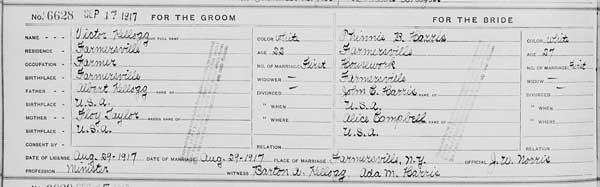 No. 6628 SEP 17 1917 FOR THE GROOM FOR THE BRIDE
NAME Victor Kellogg FULL NAME COLOR White Phinnis B. Harris COLOR White
RESIDENCE Farmersvill AGE 22 Farmersvills AGE 27
OCCUPATION Farmer NO. OF MARRIAGE First Housework NO. OF MARRIAGE First
BIRTHPLACE Farmersvill WIDOWER — Farmersvils WIDOW —
FATHER Albert Kellogg NAME OF DIVORCED — John E. Harris NAME OF DIVORCED —
BIRTHPLACE U.S.A. " WHEN U.S.A. " WHEN
MOTHER Floy Taylor MAIDEN NAME OF " WHERE Alice Campbell " WHERE
BIRTHPLACE U.S.A. U.S.A.
CONSENT BY RELATION RELATION
DATE OF LICENSE Aug. 29-1917 DATE OF MARRIAGE Aug-29-1917 PLACE OF MARRIAGE Farmersville, N.Y. OFFICIAL J. W. Norris
PROFESSION Minister WITNESS Barton A. Kellogg Ada M. Harris